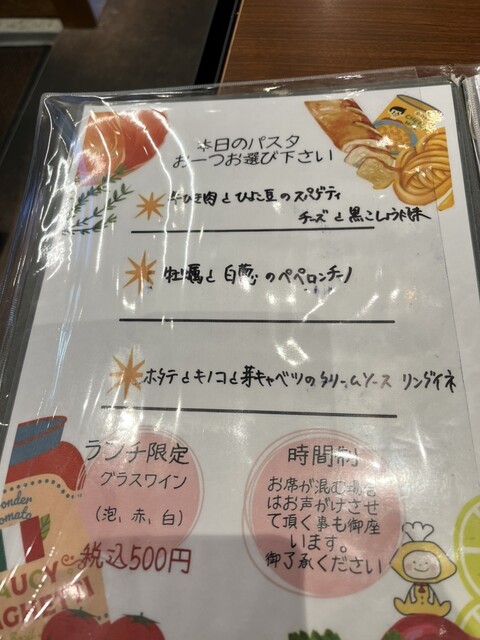 本日のパスタ
お一つお選び下さい
牛ひき肉とひよこ豆のスパゲティ
チーズと黒こしょう風味
牡蠣と白葱のペペロンチーノ
ホタテとキノコと芽キャベツのクリームソース リングイネ
ランチ限定
グラスワイン
(泡、赤、白)
税込500円
時間制
お席が混む場合
はお声がけさせ
て頂く事も御座
います。
御了承ください
onder
omato
UCY
GHETTI